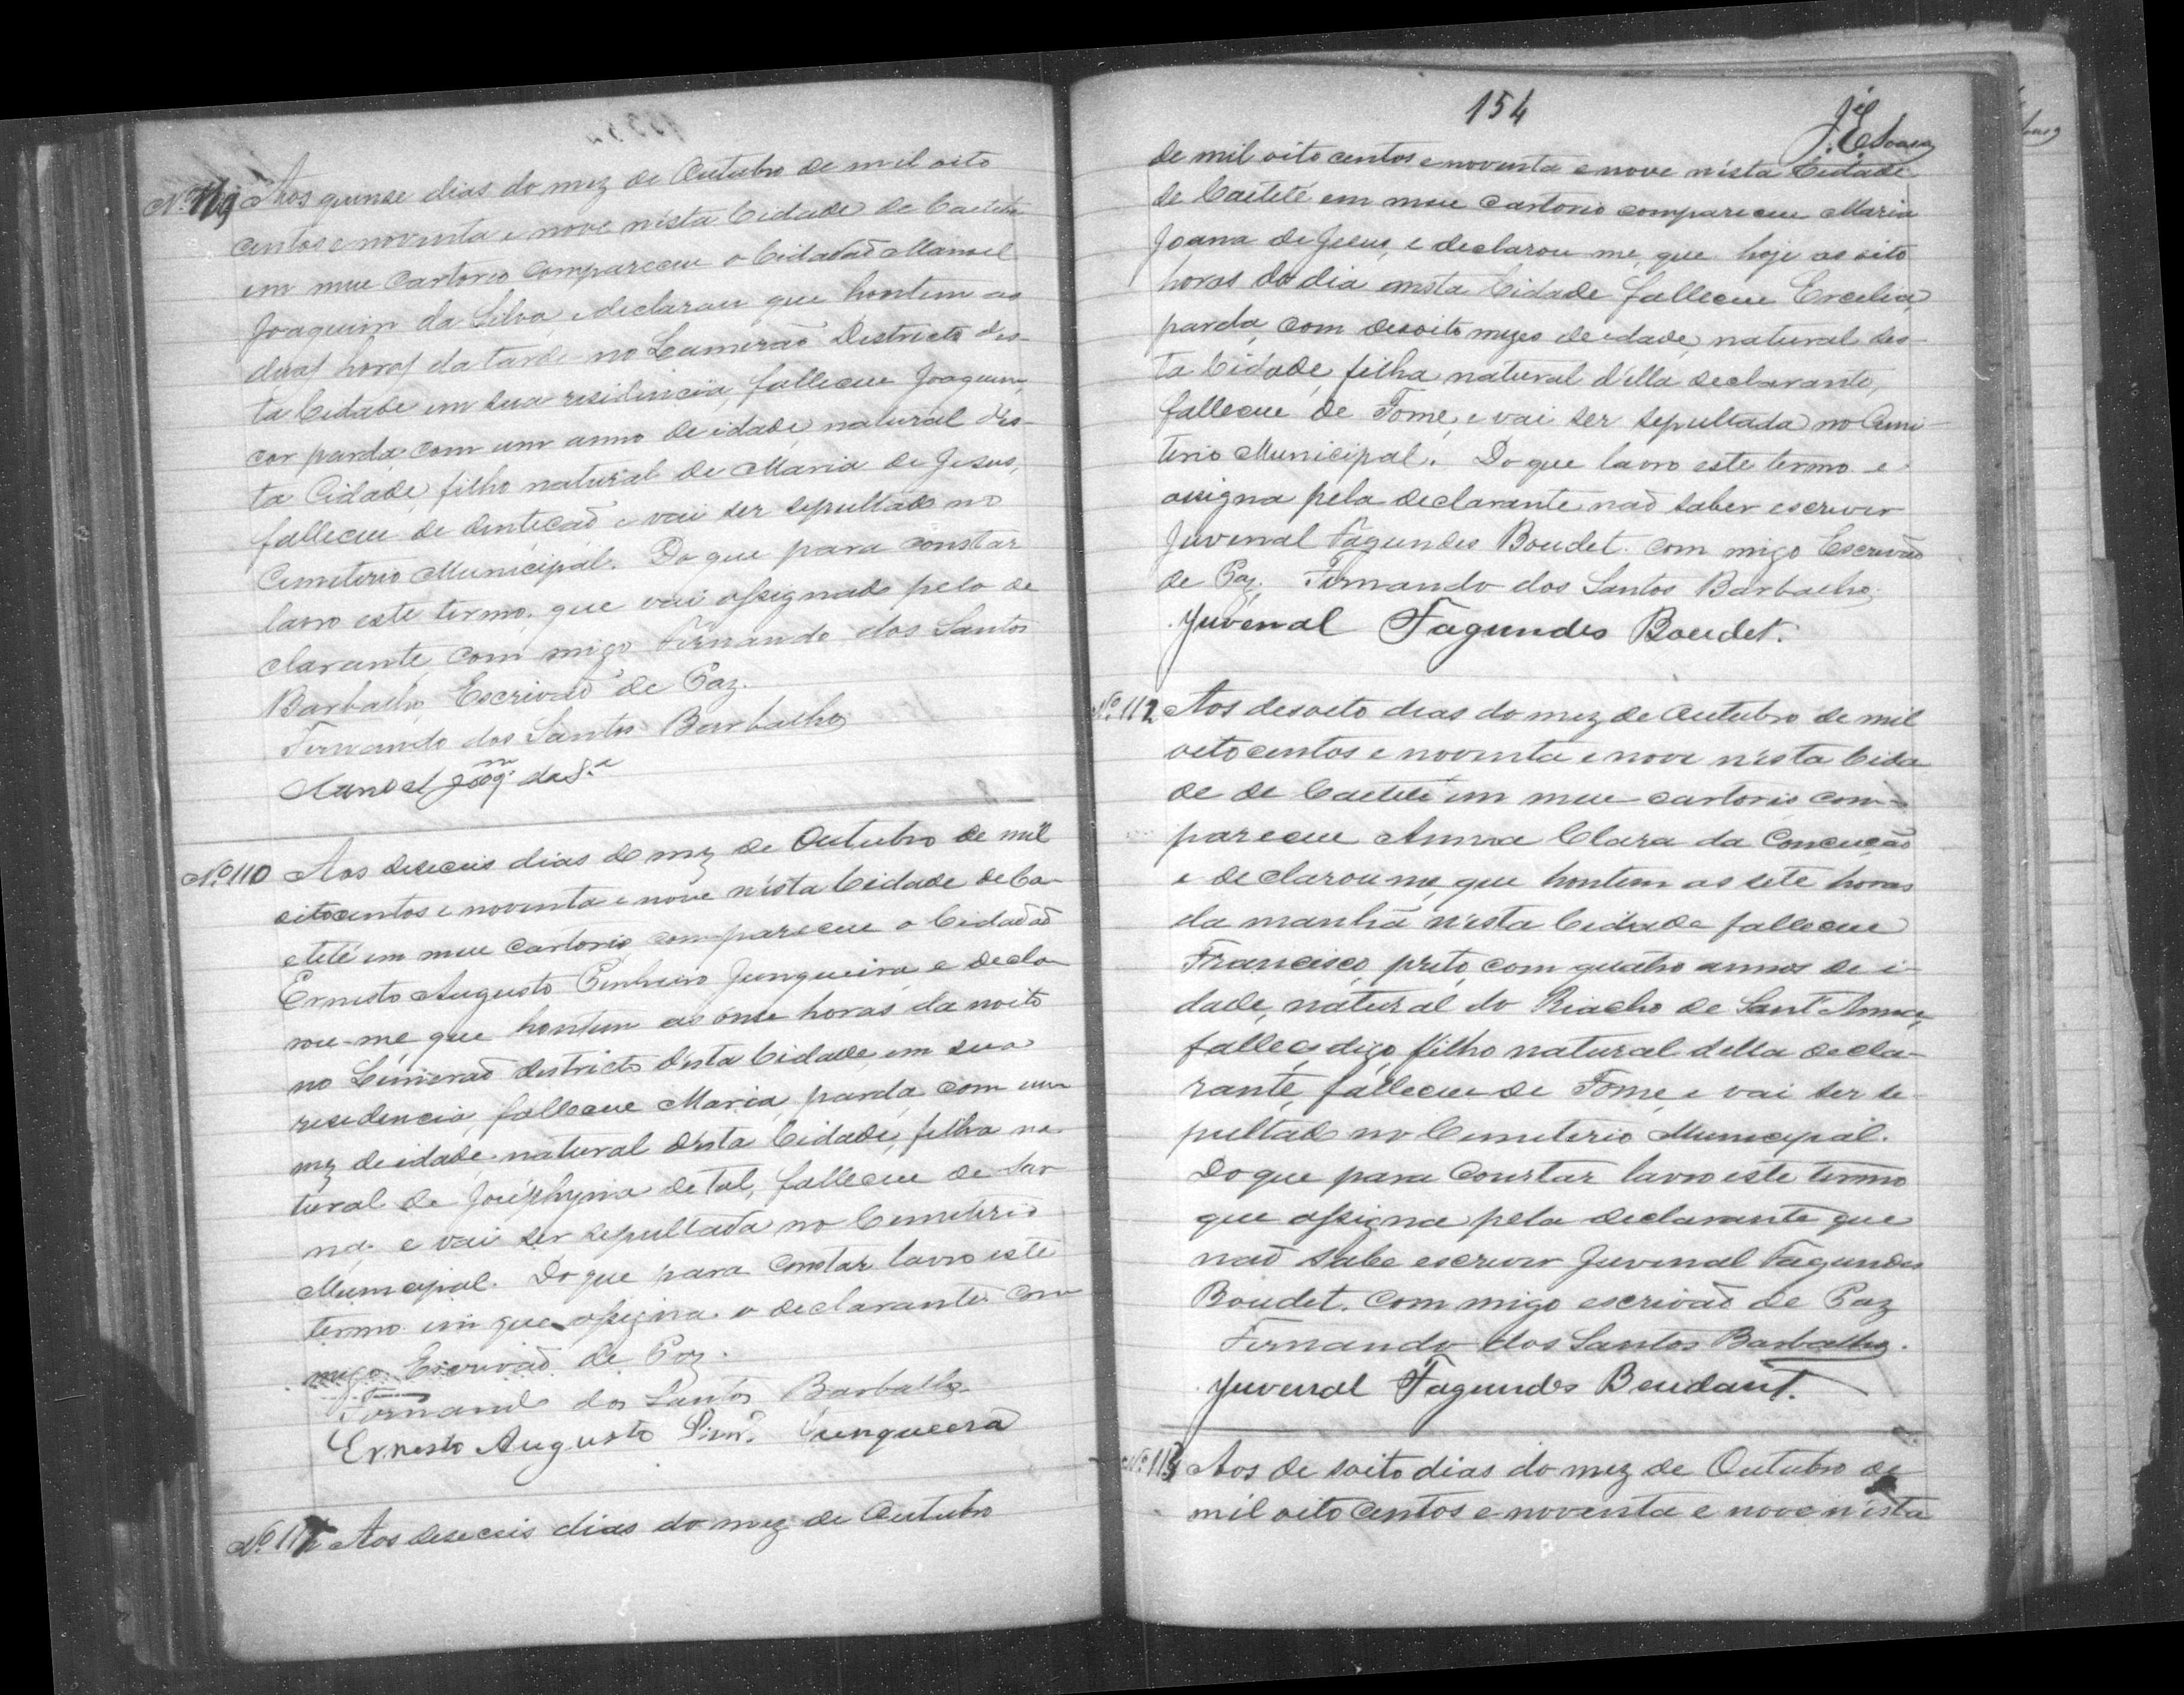 Nº 109 Aos quinse dias do mez de Outubro de mil oito
centos e noventa e nove nésta Cidade de Caeteté
em meu Cartorio compareceu o Cidadaõ Manoel
Joaquim da Silva e declarou que hontem as
duas horas da tarde no Lameiraõ Districto des-
ta Cidade em sua residencia, falleceu Joaquim,
cor parda, com um anno de idade, natural des-
ta Cidade, filho natural de Maria de Jesus,
falleceu de dentiçaõ e vai ser sepultado no
Cemiterio Municipal. Do que para constar
lavro este termo, que vai assignado pelo de
clarante, com migo Fernando dos Santos
Barbalho, Escrivaõ de Paz.
Fernando dos Santos Barbalho
Manoel Joaqm. da Sa
Nº 110 Aos deseceis dias do mez de Outubro de mil
oitocentos e noventa e nove nésta Cidade de Ca-
eteté em meu Cartorio, compareceu o Cidadaõ
Ernesto Augusto Pinheiro Junqueira, e decla-
rou-me que hontem as onse horas da noite
no Lameiraõ districto désta Cidade, em sua
residencia, falleceu Maria, parda, com um
mez de idade, natural désta Cidade, filha na-
tural de Joséphyna de tal, falleceu de sar
na, e vai ser sepultada no Cemiterio
Municipal. Do que para constar lavro este
termo em que assigna o declarante com
migo Escrivaõ de Paz.
Fernando dos Santos Barbalho
Ernesto Augusto Pinro. Junqueera
Nº 111 Aos deseceis dias do mez de Outubro
154
J. E. Sousa
de mil oito centos e noventa e nove nésta Cidade
de Caeteté em meu Cartorio compareceu Maria
Joana de Jesus, e declarou me, que hoje as oito
horas do dia nesta Cidade falleceu Ercilia,
parda, com desoito mezes de idade, natural des-
ta Cidade, filha natural d'ella declarante,
falleceu de Fome, e vai ser sepultada no Cemi-
terio Municipal. Do que lavro este termo e
assigna pela declarante naõ saber escrever
Juvenal Fagundes Boudet. com migo Escrivaõ
de Paz, Fernando dos Santos Barbalho.
Juvenal Fagundes Boudet.
Nº 112 Aos desoito dias do mez de Outubro de mil
oitocentos e noventa e nove nésta Cida
de de Caeteté em meu cartorio com-
pareceu Anna Clara da Conceiçaõ
e declarou me, que hontem as sete horas
da manhã nésta Cidade falleceu
Francisco, preto, com quatro annos de i-
dade, natural do Riacho de Sant'Anna,
fallece digo filho natural della decla-
rante, falleceu de Fome, e vai ser se-
pultado no Cemiterio Municipal.
Do que para Constar lavro este termo
que assigna pela declarante que
naõ sabe escrever Juvenal Fagundes
Boudet. Com migo escrivaõ de Paz
Fernando dos Santos Barbalho.
Juvenal Fagundes Beudant.
Nº 113 Aos de soito dias do mez de Outubro de
mil oito centos e noventa e nove n'esta